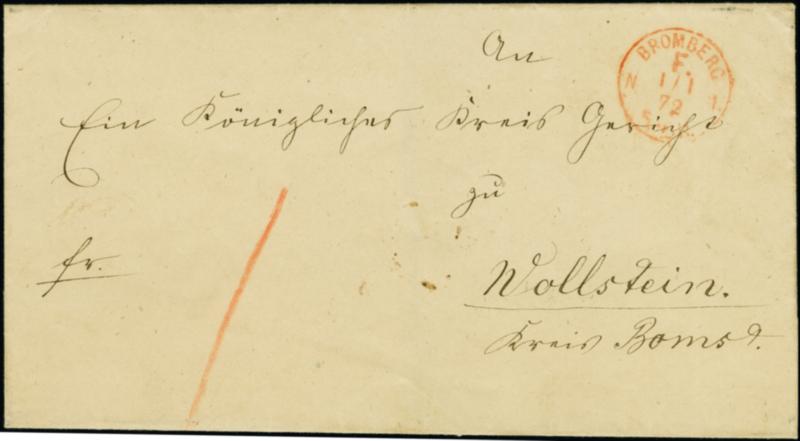 An
Ein Königliches Kreis Gericht
zu
fr.
Wollstein.
Kreis Bomst.
BROMBERG
F.
N 1/1 1.
72